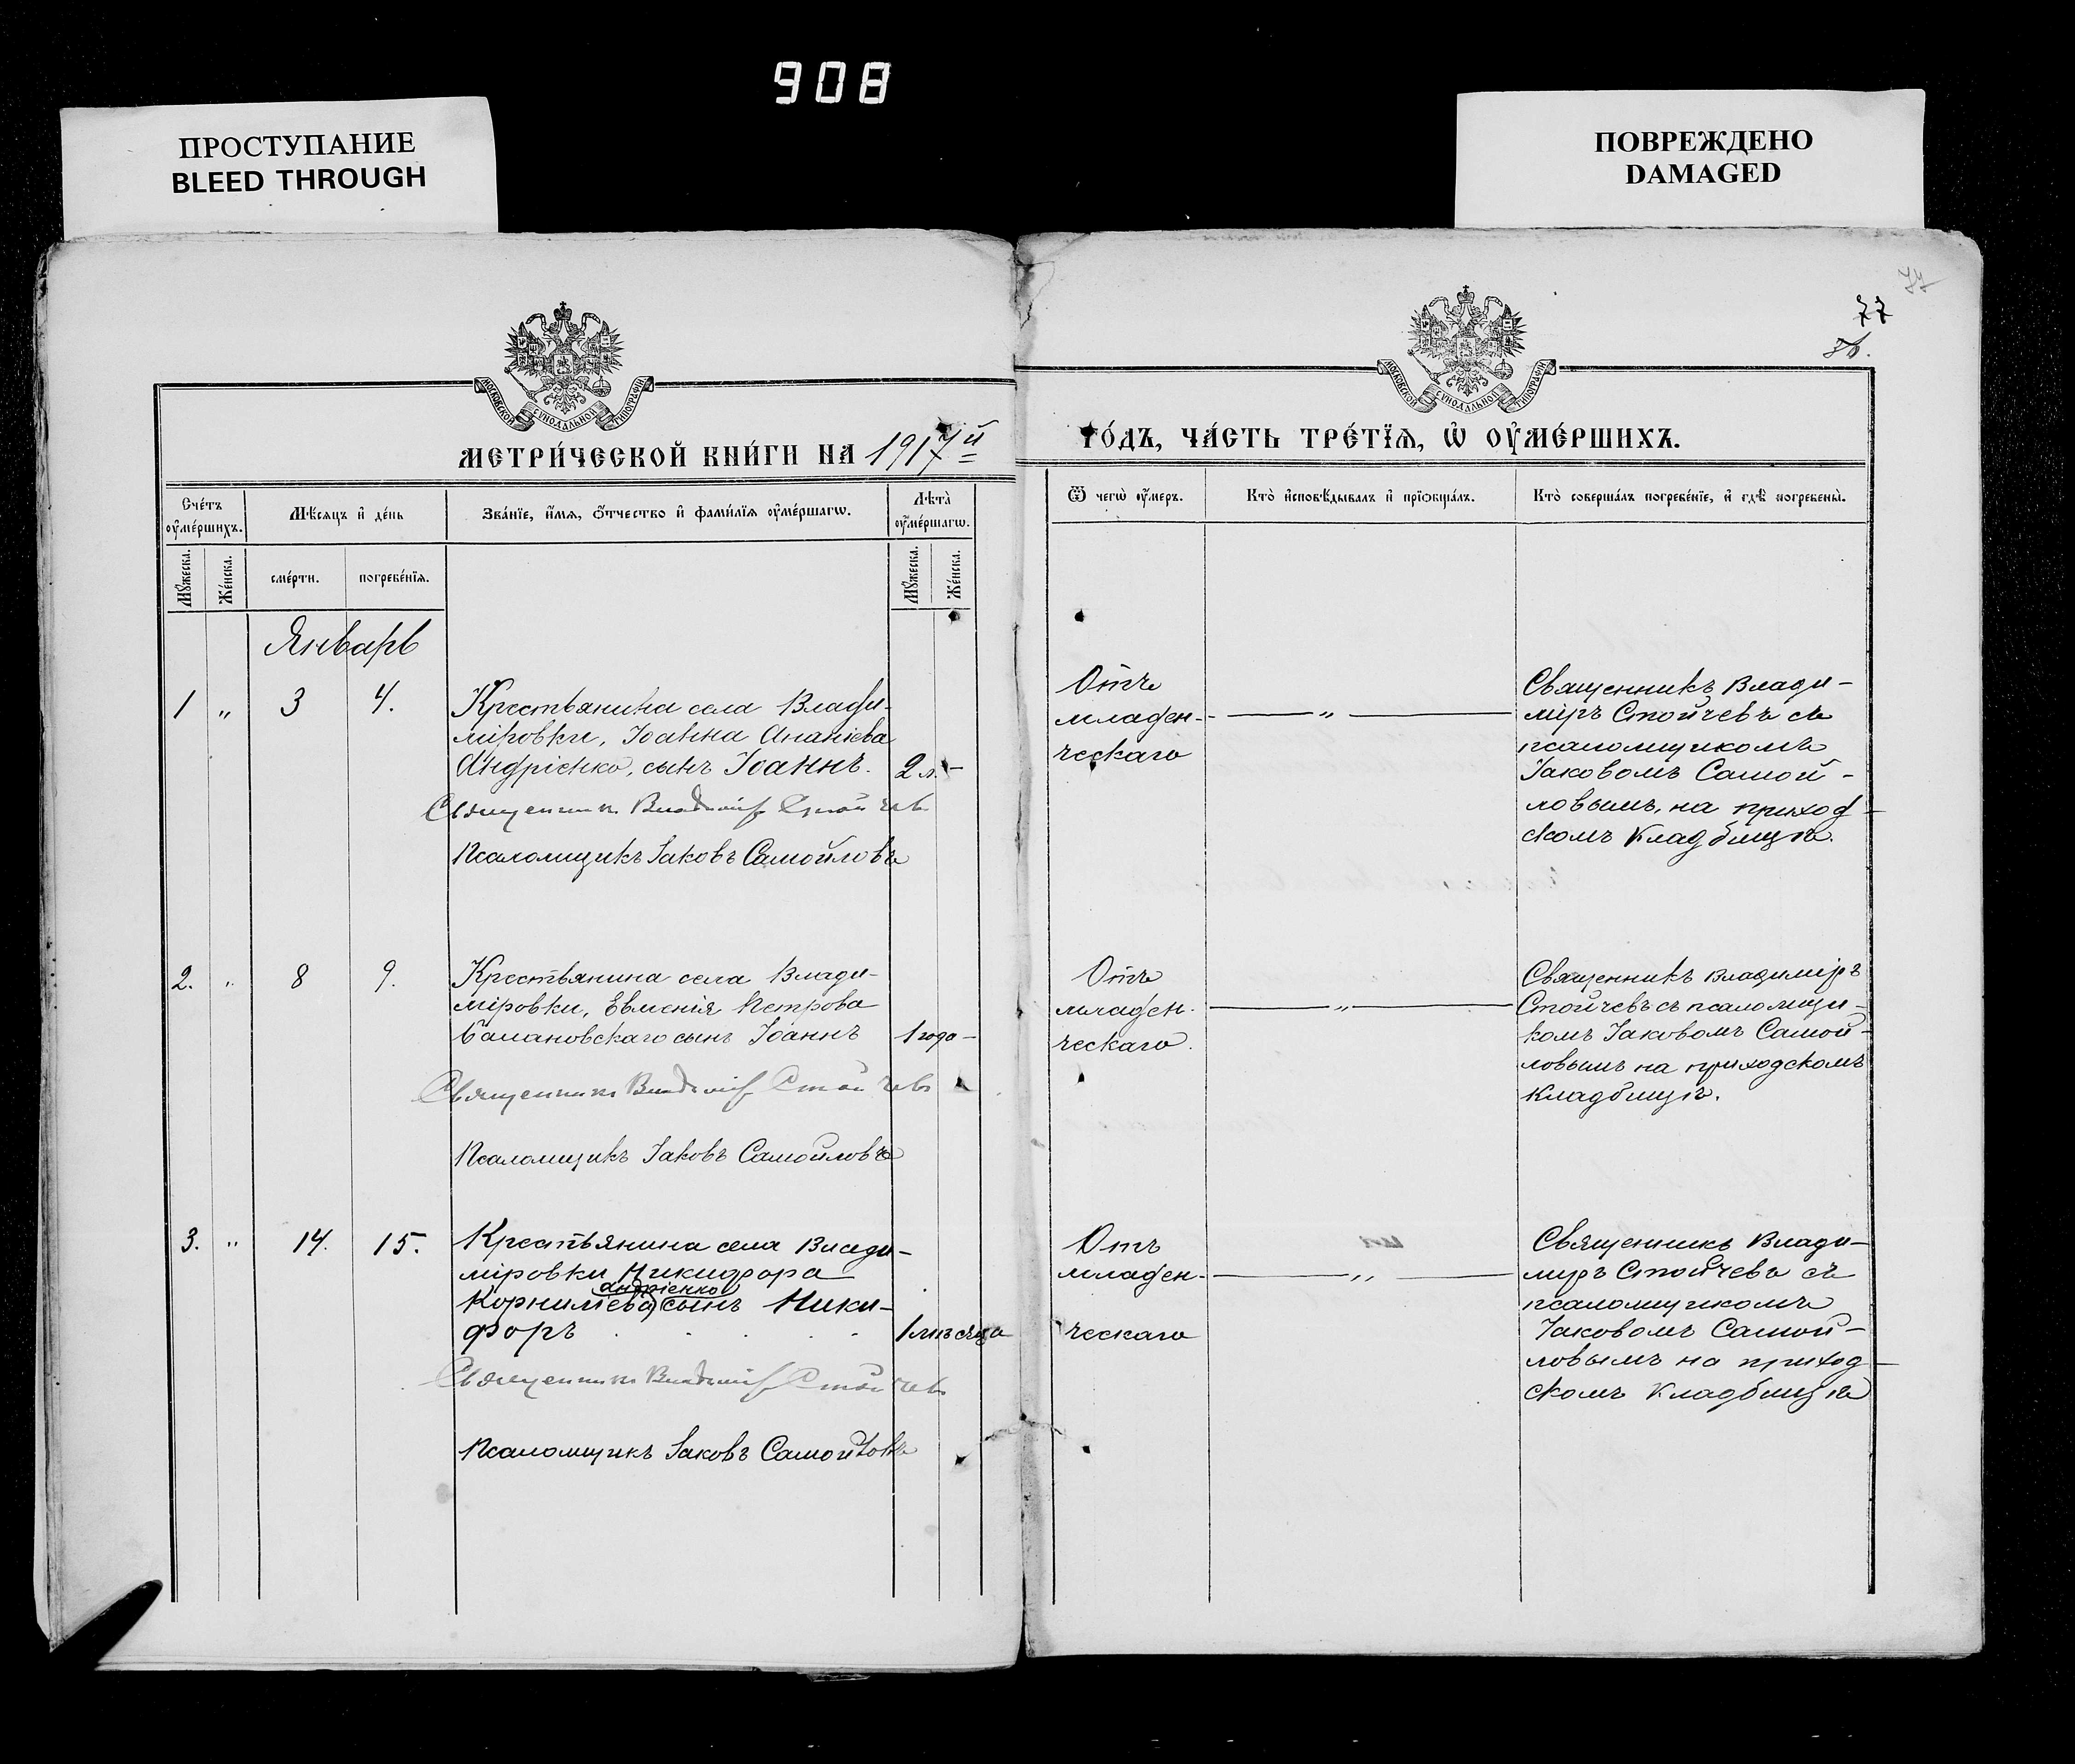 908
ПРОСТУПАНИЕ
BLEED THROUGH
ПОВРЕЖДЕНО
DAMAGED
77
77
76.
МОСКОВСКОЙ СѴНОДАЛЬНОЙ ТИПОГРАФІИ
МОСКОВСКОЙ СѴНОДАЛЬНОЙ ТИПОГРАФІИ
МЕТРИ́ЧЕСКОЙ КНИ́ГИ НА 1917й
ГО́ДЪ, ЧА́СТЬ ТРЕ́ТЇѦ, Ѡ҆ ОУ҆МЕ́РШИХЪ.
Сче́тъ оу҆ме́ршихъ.
Мѣ́сѧцъ и҆ де́нь
Зва́нїе, и҆́мѧ, ѻ҆́тчество и҆ фами́лїѧ оу҆ме́ршагѡ.
Лѣ́та оу҆ме́ршагѡ.
Ѿ чегѡ̀ оу҆́меръ.
Кто̀ и҆сповѣ́дывалъ и҆ прїѡбща́лъ.
Кто̀ соверша́лъ погребе́нїе, и҆ гдѣ̀ погребены̀.
Мꙋ́жеска. Же́нска. сме́рти. погребе́нїѧ. Мꙋ́жеска. Же́нска.
Январь
1 „ 3 4. Крестьянина села Влади-
міровки, Іоанна Ананіева
Андріенко, сынъ Іоаннъ. 2 л. –
Священникъ Владиміръ Стойчевъ
Псаломщикъ Іаковъ Самойловъ
Отъ
младен-
ческаго
„
Священникъ Влади-
міръ Стойчевъ съ
псаломщикомъ
Іаковомъ Самой-
ловымъ, на приход-
скомъ кладбищѣ.
2. „ 8 9. Крестьянина села Влади-
міровки, Евменія Петрова
Балановскаго сынъ Іоаннъ 1 года –
Священникъ Владиміръ Стойчевъ
Псаломщикъ Іаковъ Самойловъ
Отъ
младен-
ческаго.
„
Священникъ Владиміръ
Стойчевъ съ псаломщи-
комъ Іаковомъ Самой-
ловымъ на приходскомъ
кладбищѣ.
3. „ 14. 15. Крестьянина села Влади-
міровки Никифора
андріенко
Корниліева) сынъ Ники-
форъ . . . . 1 мѣсяца
Священникъ Владиміръ Стойчевъ
Псаломщикъ Іаковъ Самойловъ
Отъ
младен-
ческаго
„
Священникъ Влади-
міръ Стойчевъ съ
псаломщикомъ
Іаковомъ Самой-
ловымъ на приход-
скомъ кладбищѣ